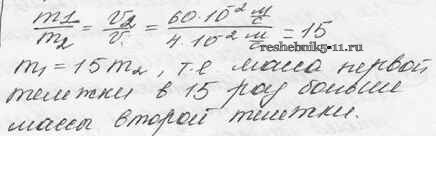 m1/m2 = v2/v. = 60·10⁻² м/с / 4·10⁻² м/с = 15
reshebnik5-11.ru
m1 = 15m2, т.е масса первой
тележки в 15 раз больше
массы второй тележки.